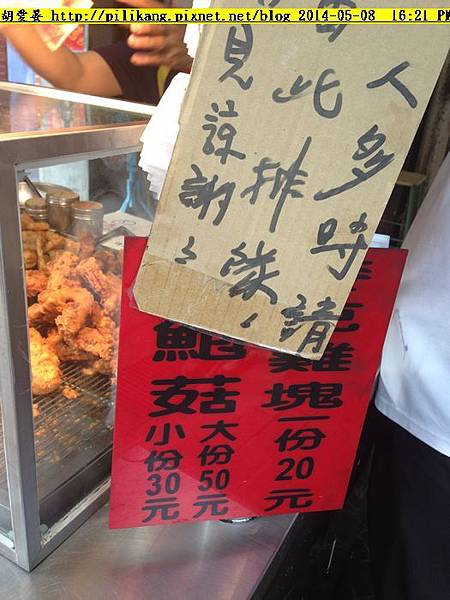 胡愛晏 http://pilikang.pixnet.net/blog 2014-05-08 16:21 PM
人多時請
此排隊,
見諒謝謝
雞塊一份20元
鮑菇
大份50元
小份30元